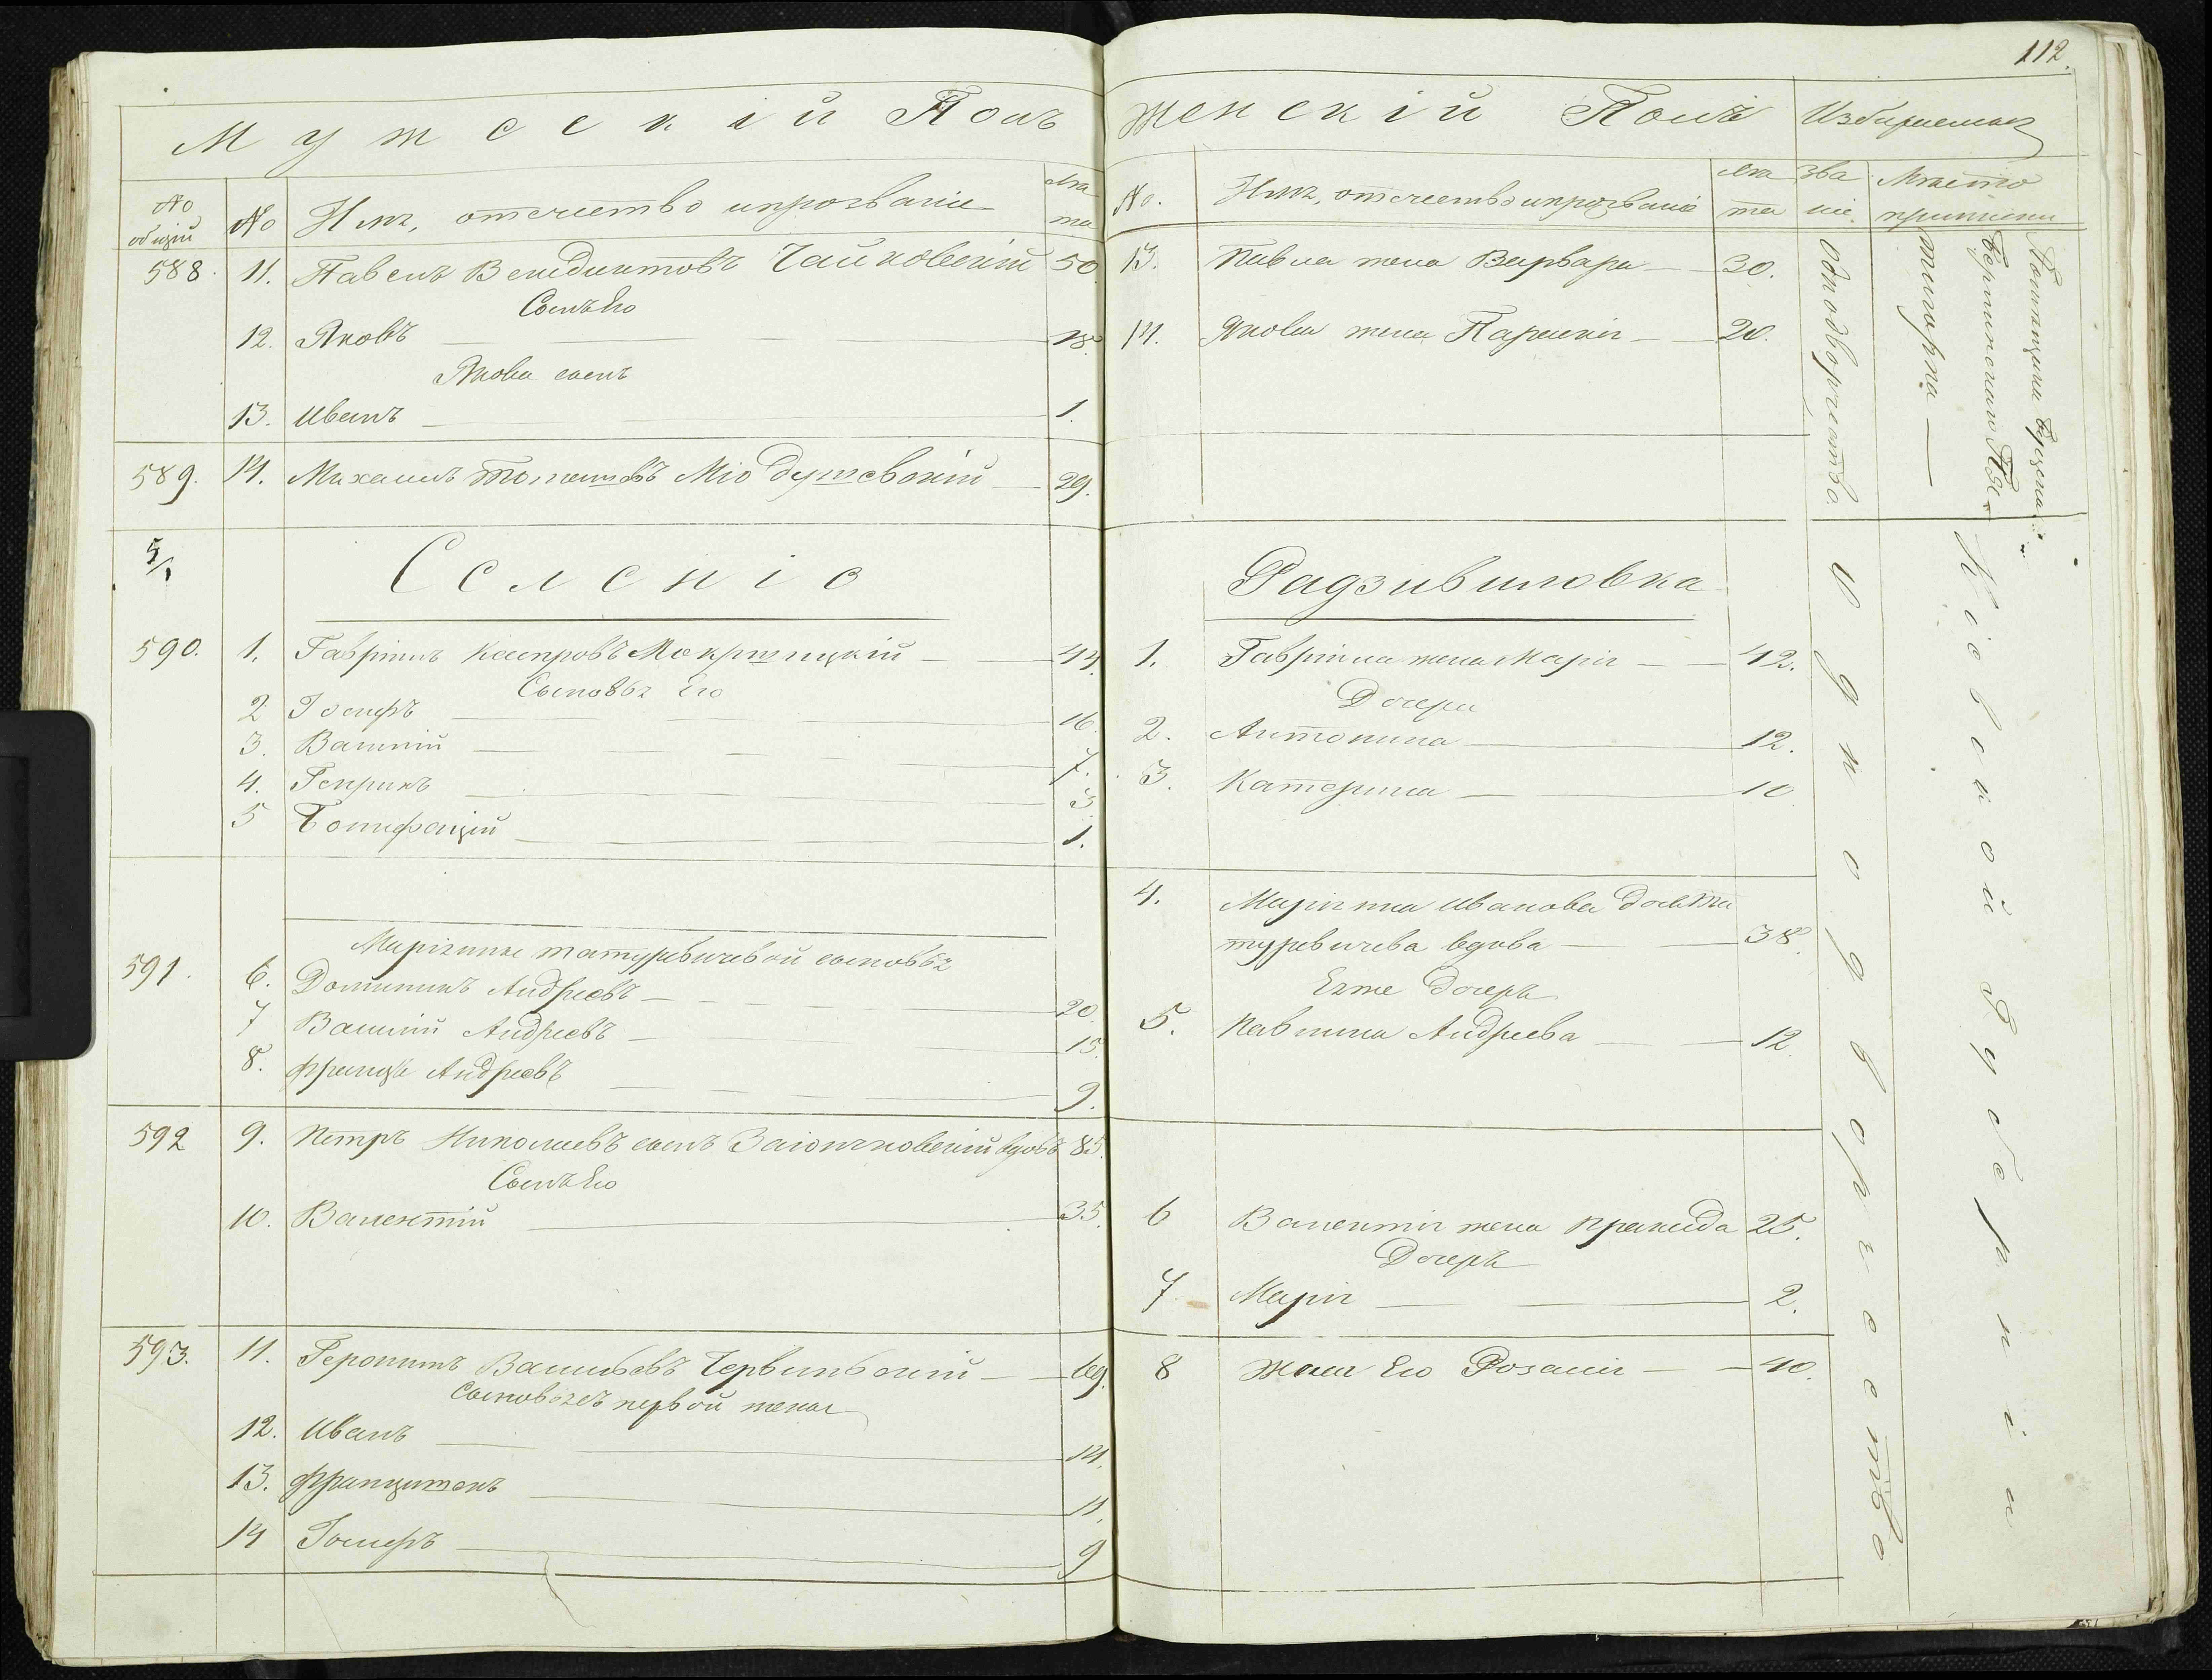 112.
Мужескій Полъ
№ общій
№
Имя, отчество и прозваніе
лѣта
588.
11. Павелъ Венедиктовъ Чайковскій 50
Сынъ Его
12. Яковъ 18.
Якова сынъ
13. Иванъ 1.
589.
14. Михаилъ Томашовъ Міодушевскій 29.
5/1
Селеніе
590.
1. Гавріилъ Каспровъ Мокржицкій 44.
Сыновья Его
2 Іосифъ 16.
3. Василій 7.
4. Генрикъ 3
5 Бонифацій 1.
591.
Маріянны Матушевичевой сыновья
6. Доминикъ Андреевъ 20.
7 Василій Андреевъ 15.
8. Францъ Андреевъ 9.
592
9. Петръ Николаевъ сынъ вдовъ 85.
Сынъ Его
10. Валентій 35.
593.
11. Геронимъ Васильевъ Червинскій 69.
Сыновья съ первой жены
12. Иванъ 14.
13. Францишекъ 11.
14 Іосифъ 9
Женскій Полъ
Избираемыя
№.
Имя, отчество и прозваніе
лѣта
званіе
Мѣсто приписки
13. Павла жена Варвара 30.
14. Якова жена Параскія 20.
однодворчество.
Радзивиловка
1. Гавріила жена Марія 42.
Дочери
2. Антонина 12.
3. Катерина 10
4. Маріянна Иванова дочь
вдова 38.
Ея же дочерь
5. Павлина Андреева 12.
6 Валентія жена Пракседа 25.
Дочерь
7 Марія 2.
8 Жена Его Розалія 40.
Однодворчество
Кіевской Губерніи